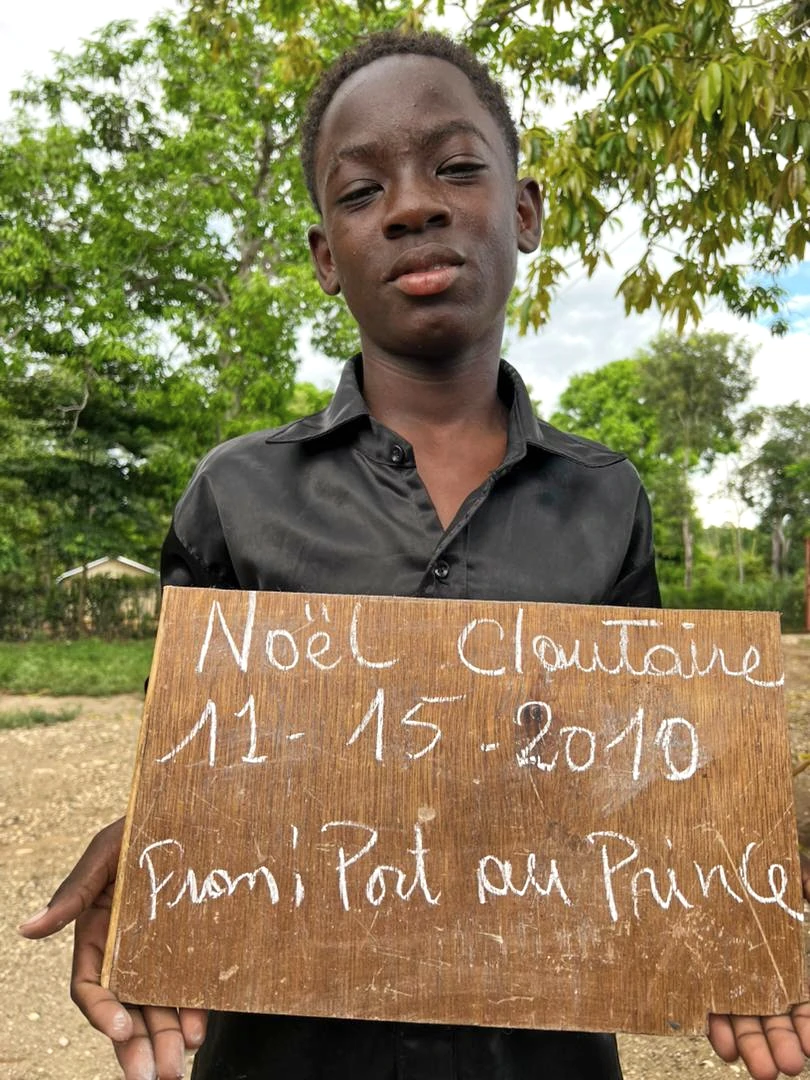 Noël Cloutaire
11-15-2010
From: Port au Prince